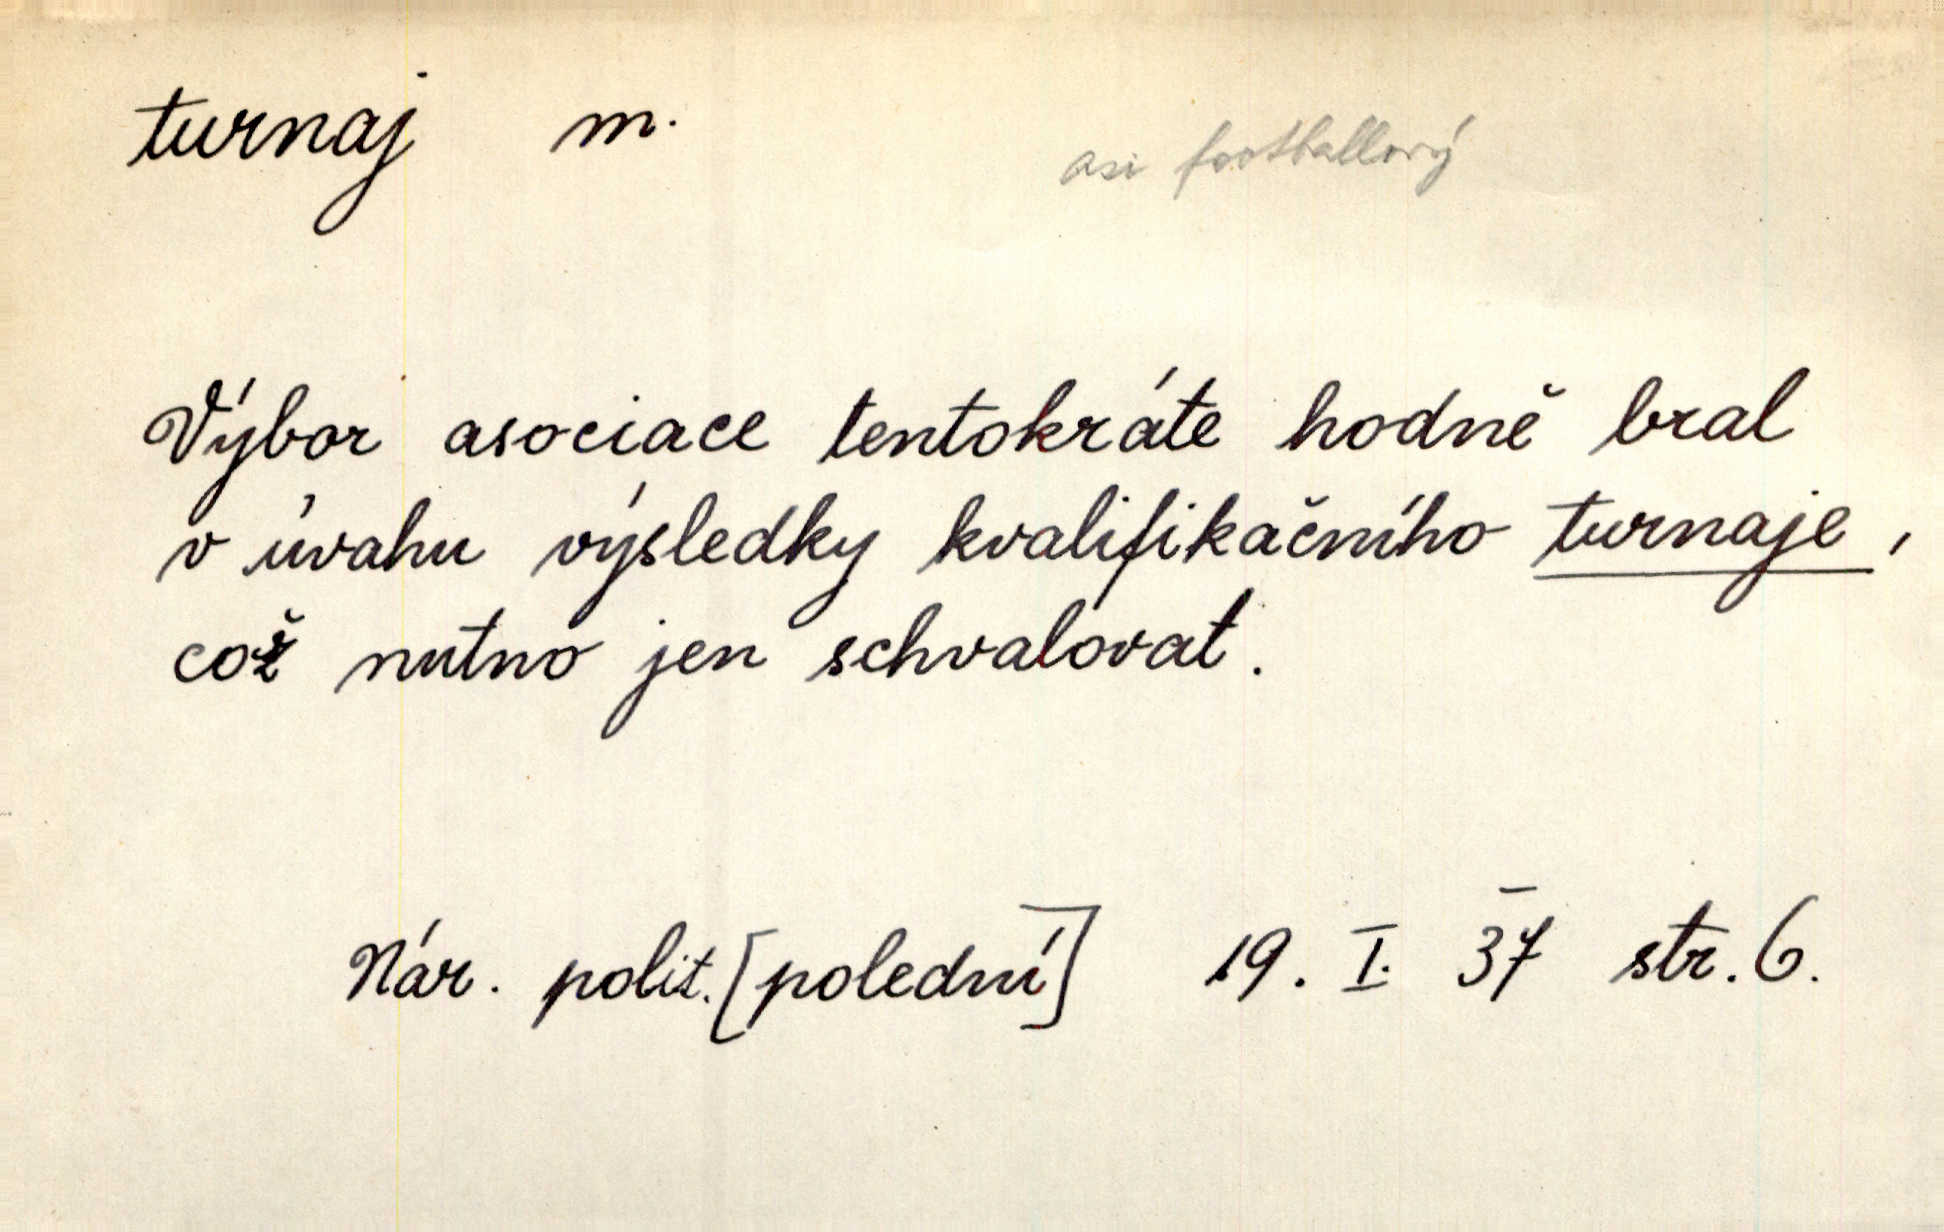 turnaj m. asi footballový
Výbor asociace tentokráte hodně bral
v úvahu výsledky kvalifikačního turnaje,
což nutno jen schvalovat.
Nár. polit. [polední] 19. I. 37 str. 6.